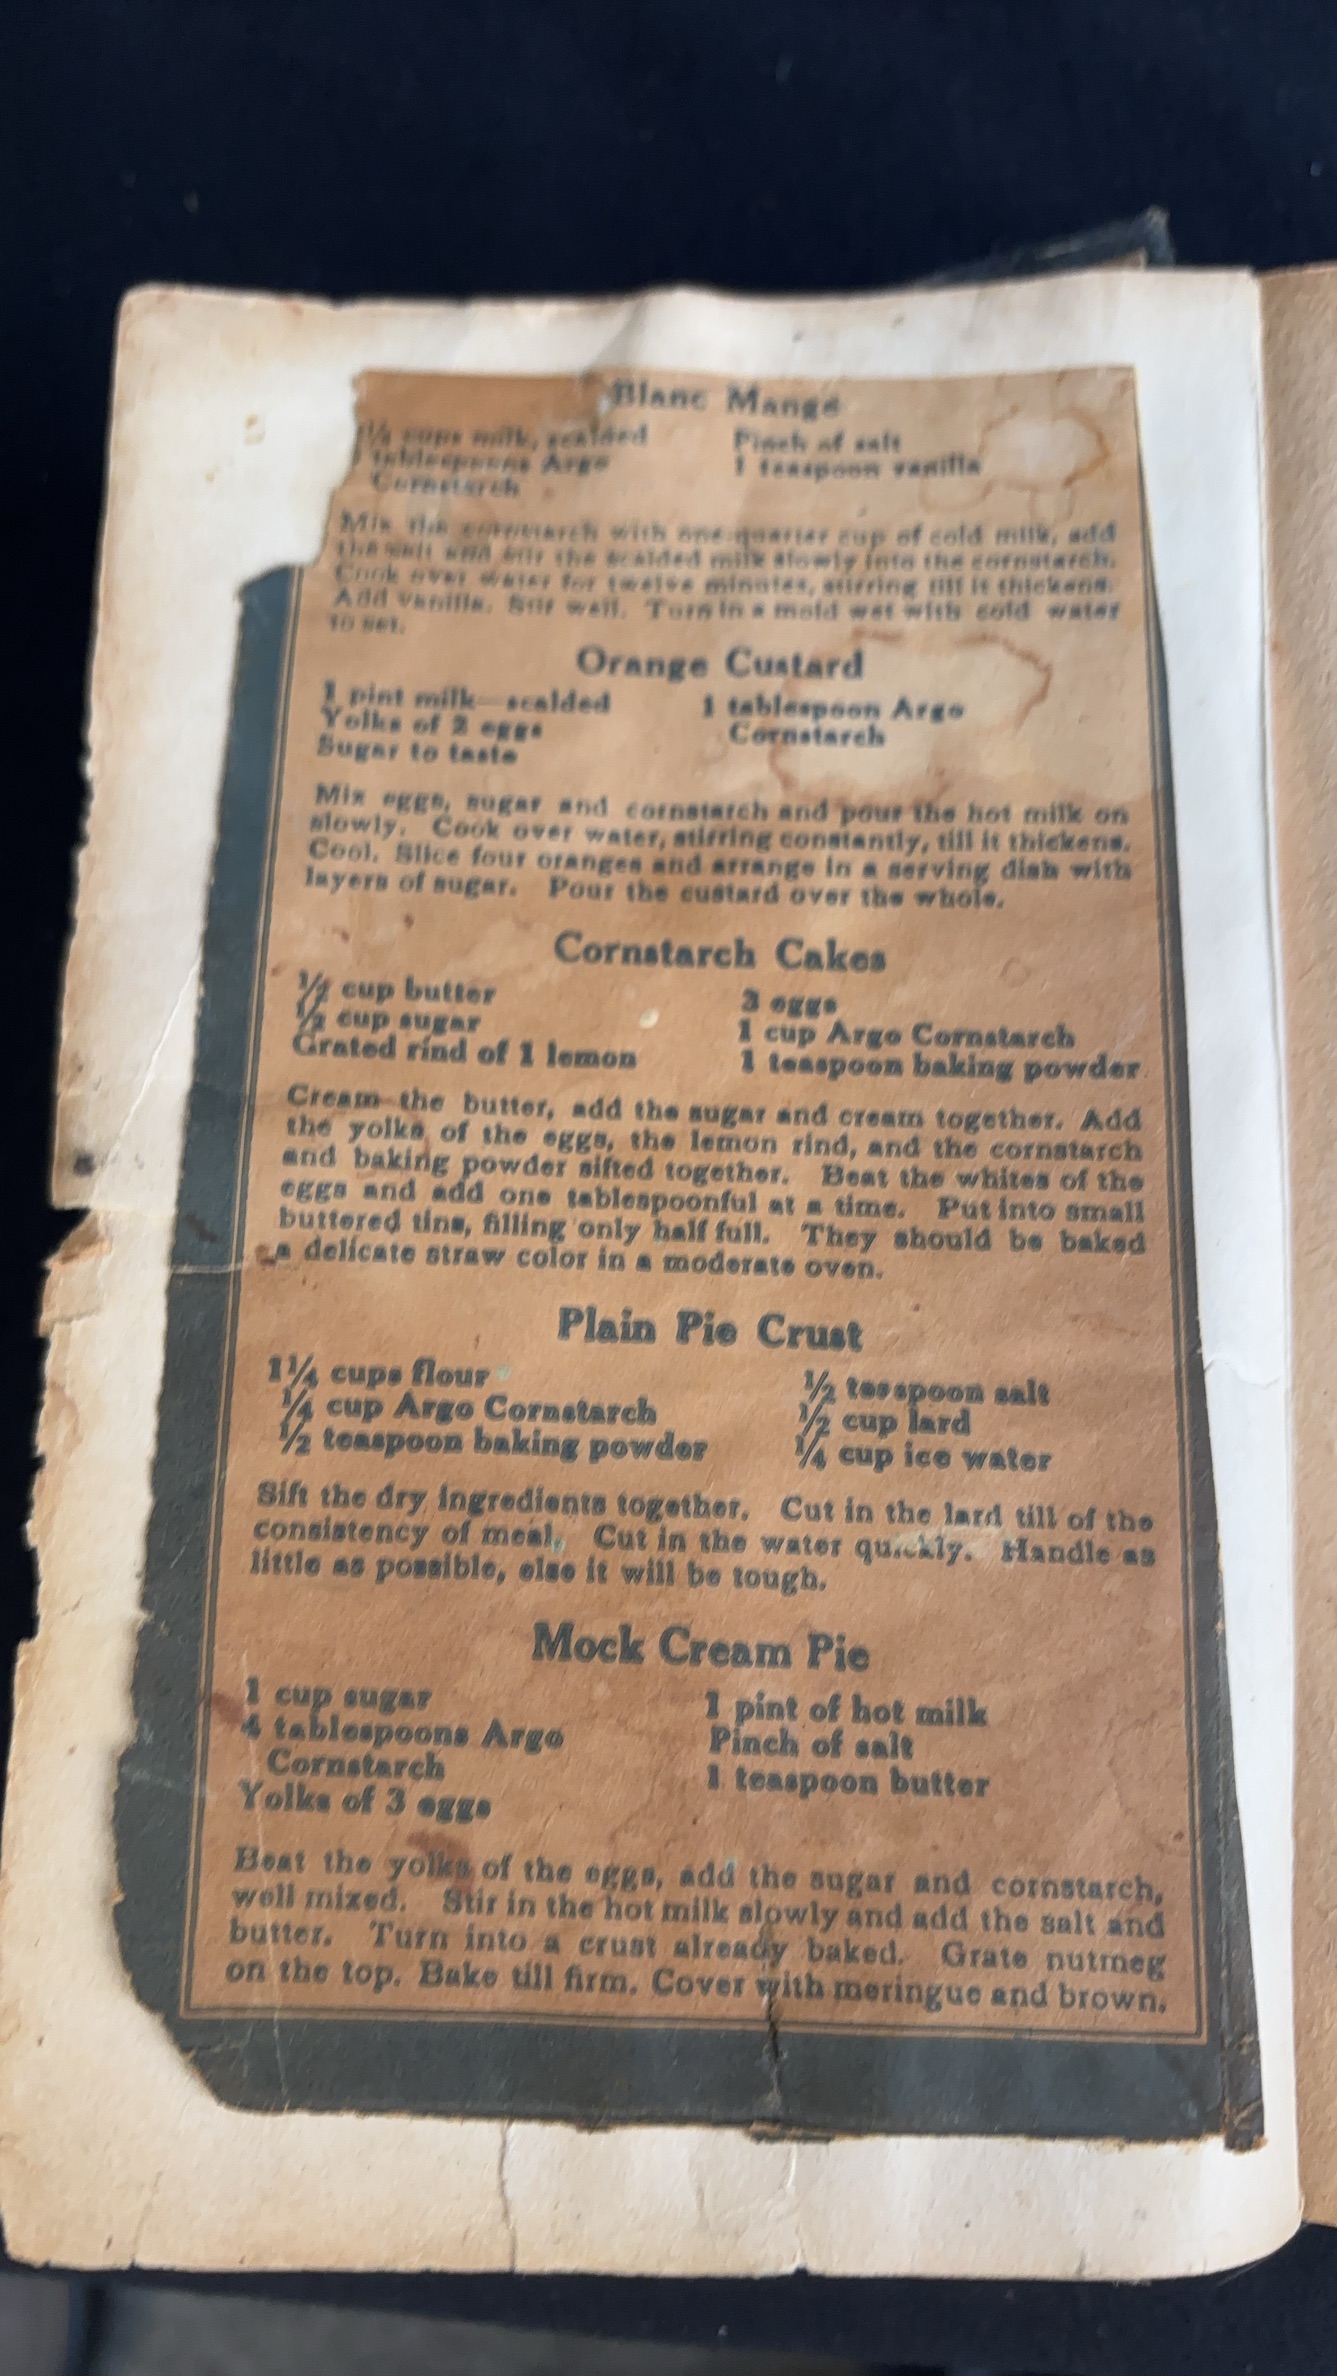 Blanc Mange
cups milk, scalded
Pinch of salt
tablespoons Argo
1 teaspoon vanilla
Cornstarch
Mix the cornstarch with one-quarter cup of cold milk, add
the salt and stir the scalded milk slowly into the cornstarch.
Cook over water for twelve minutes, stirring till it thickens.
Add vanilla. Stir well. Turn in a mold wet with cold water
to set.
Orange Custard
1 pint milk—scalded
1 tablespoon Argo
Yolks of 2 eggs
Cornstarch
Sugar to taste
Mix eggs, sugar and cornstarch and pour the hot milk on
slowly. Cook over water, stirring constantly, till it thickens.
Cool. Slice four oranges and arrange in a serving dish with
layers of sugar. Pour the custard over the whole.
Cornstarch Cakes
½ cup butter
3 eggs
½ cup sugar
1 cup Argo Cornstarch
Grated rind of 1 lemon
1 teaspoon baking powder
Cream the butter, add the sugar and cream together. Add
the yolks of the eggs, the lemon rind, and the cornstarch
and baking powder sifted together. Beat the whites of the
eggs and add one tablespoonful at a time. Put into small
buttered tins, filling only half full. They should be baked
a delicate straw color in a moderate oven.
Plain Pie Crust
1¼ cups flour
½ teaspoon salt
¼ cup Argo Cornstarch
½ cup lard
½ teaspoon baking powder
¼ cup ice water
Sift the dry ingredients together. Cut in the lard till of the
consistency of meal. Cut in the water quickly. Handle as
little as possible, else it will be tough.
Mock Cream Pie
1 cup sugar
1 pint of hot milk
4 tablespoons Argo
Pinch of salt
Cornstarch
1 teaspoon butter
Yolks of 3 eggs
Beat the yolks of the eggs, add the sugar and cornstarch,
well mixed. Stir in the hot milk slowly and add the salt and
butter. Turn into a crust already baked. Grate nutmeg
on the top. Bake till firm. Cover with meringue and brown.